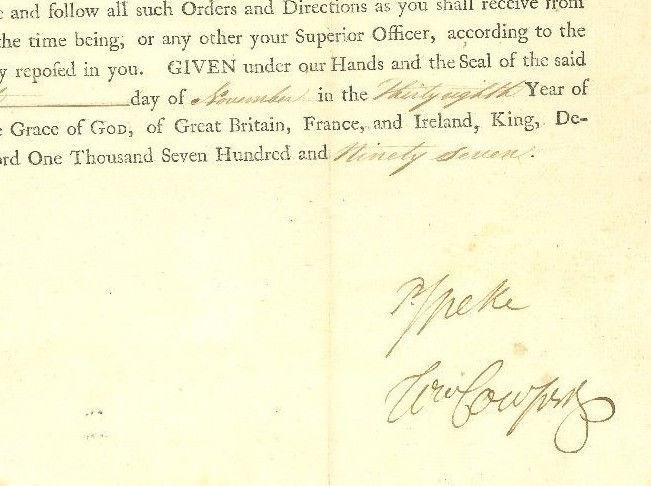 and follow all such Orders and Directions as you shall receive from
the time being, or any other your Superior Officer, according to the
y reposed in you. GIVEN under our Hands and the Seal of the said
day of November in the Thirty eighth Year of
Grace of GOD, of Great Britain, France, and Ireland, King, De-
ord One Thousand Seven Hundred and Ninety seven.
P. Speke
Wm Cowper